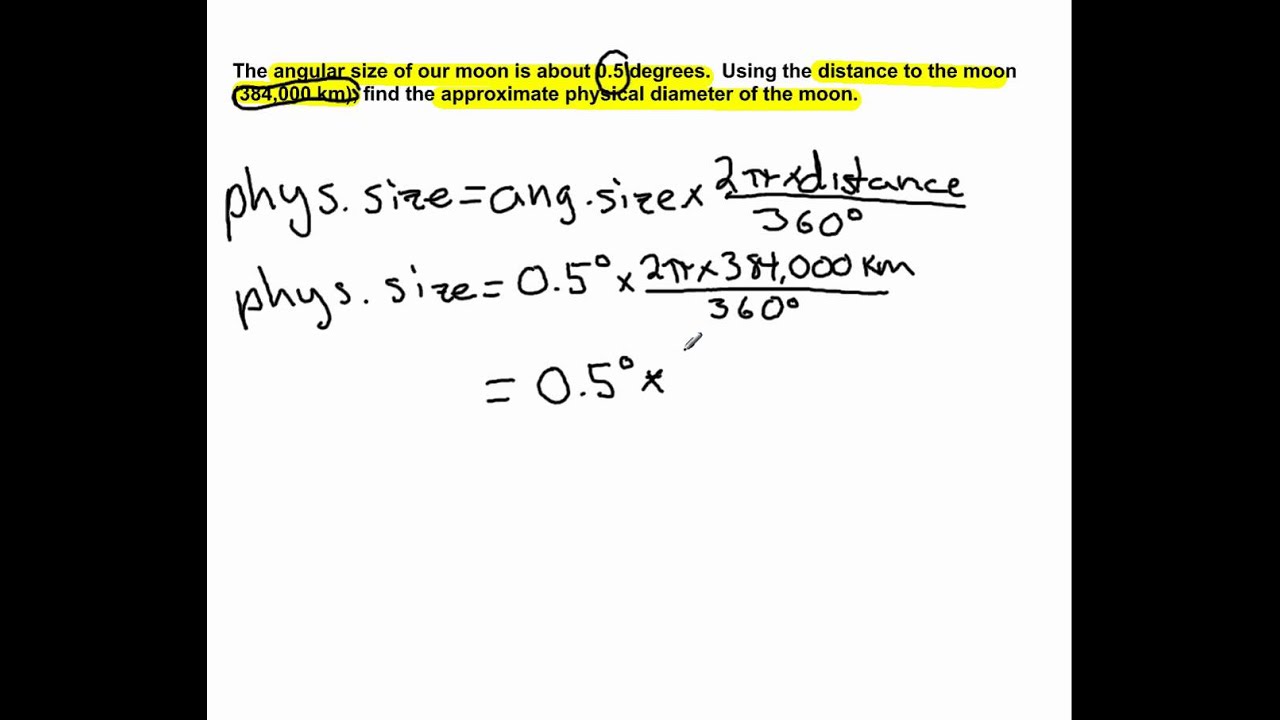 The angular size of our moon is about 0.5 degrees. Using the distance to the moon
(384,000 km), find the approximate physical diameter of the moon.
phys. size = ang. size × 2π × distance / 360°
phys. size = 0.5° × 2π × 384,000 km / 360°
= 0.5° ×